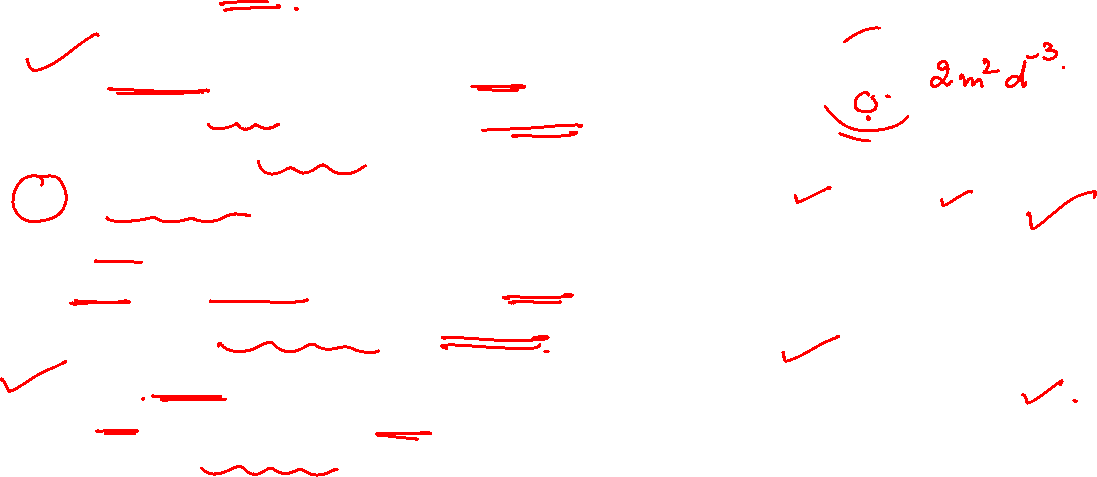 2m²d⁻³.